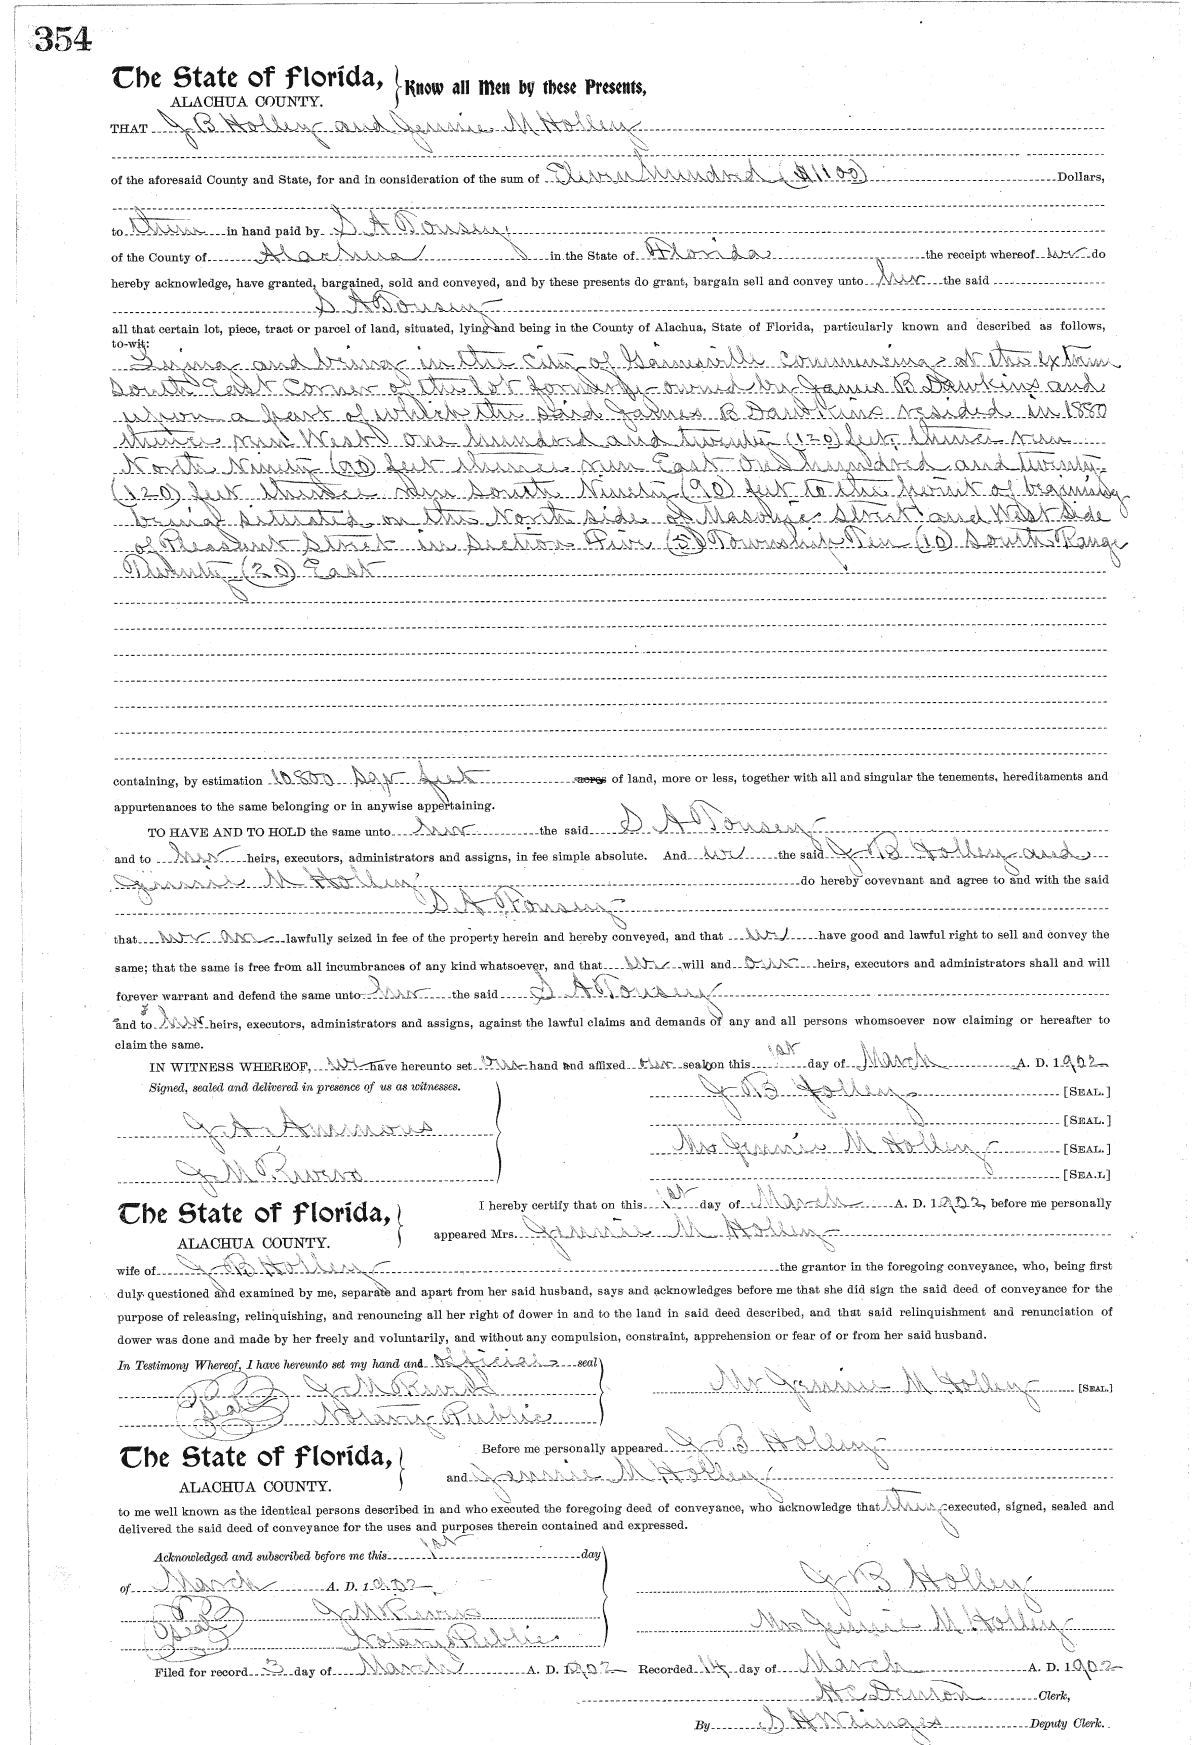 354
The State of Florida, Know all Men by these Presents,
ALACHUA COUNTY.
THAT J B Holley and Jennie M Holley
of the aforesaid County and State, for and in consideration of the sum of Eleven Hundred ($1100) Dollars,
to them in hand paid by S A Tousey
of the County of Alachua in the State of Florida the receipt whereof we do
hereby acknowledge, have granted, bargained, sold and conveyed, and by these presents do grant, bargain sell and convey unto her the said
S A Tousey
all that certain lot, piece, tract or parcel of land, situated, lying and being in the County of Alachua, State of Florida, particularly known and described as follows,
to-wit:
Lying and being in the city of Gainesville commencing at the extreme
South East corner of the lot formerly owned by James B Dawkins and
upon a part of which the said James B Dawkins resided in 1880
thence run West one hundred and twenty (120) feet thence run
North Ninety (90) feet thence run East one hundred and twenty
(120) feet thence run South Ninety (90) feet to the point of beginning
being situated on the North side of Masonic Street and West Side
of Pleasant Street in Section Five (5) Township Ten (10) South Range
Twenty (20) East
containing, by estimation 10800 Sqr feet acres of land, more or less, together with all and singular the tenements, hereditaments and
appurtenances to the same belonging or in anywise appertaining.
TO HAVE AND TO HOLD the same unto her the said S A Tousey
and to her heirs, executors, administrators and assigns, in fee simple absolute. And we the said J B Holley and
Jennie M Holley do hereby covevnant and agree to and with the said
S A Tousey
that we are lawfully seized in fee of the property herein and hereby conveyed, and that we have good and lawful right to sell and convey the
same; that the same is free from all incumbrances of any kind whatsoever, and that we will and our heirs, executors and administrators shall and will
forever warrant and defend the same unto her the said S A Tousey
and to her heirs, executors, administrators and assigns, against the lawful claims and demands of any and all persons whomsoever now claiming or hereafter to
claim the same.
IN WITNESS WHEREOF, we have hereunto set our hand and affixed our seal on this 1st day of March A. D. 1902
Signed, sealed and delivered in presence of us as witnesses. J B Holley [SEAL.]
[SEAL.]
J A Ammons Mrs Jennie M Holley [SEAL.]
J M Rivers [SEA.L]
The State of Florida, I hereby certify that on this 1st day of March A. D. 1902, before me personally
ALACHUA COUNTY. appeared Mrs. Jennie M Holley
wife of J B Holley the grantor in the foregoing conveyance, who, being first
duly questioned and examined by me, separate and apart from her said husband, says and acknowledges before me that she did sign the said deed of conveyance for the
purpose of releasing, relinquishing, and renouncing all her right of dower in and to the land in said deed described, and that said relinquishment and renunciation of
dower was done and made by her freely and voluntarily, and without any compulsion, constraint, apprehension or fear of or from her said husband.
In Testimony Whereof, I have hereunto set my hand and official seal
J M Rivers Mrs Jennie M Holley [SEAL.]
Seal Notary Public
The State of Florida, Before me personally appeared J B Holley
ALACHUA COUNTY. and Jennie M Holley
to me well known as the identical persons described in and who executed the foregoing deed of conveyance, who acknowledge that they executed, signed, sealed and
delivered the said deed of conveyance for the uses and purposes therein contained and expressed.
Acknowledged and subscribed before me this 1st day
of March A. D. 1902 J B Holley
J M Rivers
Seal Notary Public Mrs Jennie M Holley
Filed for record 3 day of March A. D. 1902 Recorded 14 day of March A. D. 1902
H C Denton Clerk,
By S H Wienges Deputy Clerk.